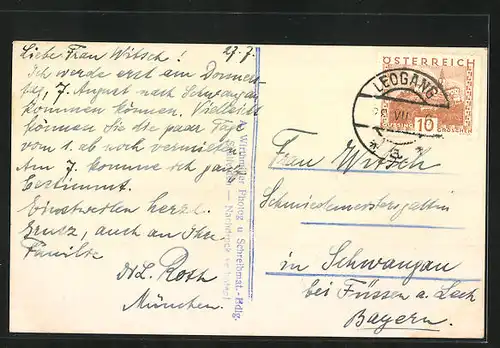 27./7.
Liebe Frau Witsch!
Ich werde erst am Donners-
tag, 7. August nach Schwangau
kommen können. Vielleicht
können Sie die paar Tage
vom 1. ab noch vermieten.
Am 7. komme ich ganz
bestimmt.
Einstweilen herzl.
Gruss, auch an Ihre
Familie
Roth
München.
Photog u Schreibmat.-Hdlg.
ÖSTERREICH
LEOGANG
VII
10
GROSCHEN
Frau Witsch
Schmiedemeistersgattin
in Schwangau
bei Füssen a. Lech
Bayern.